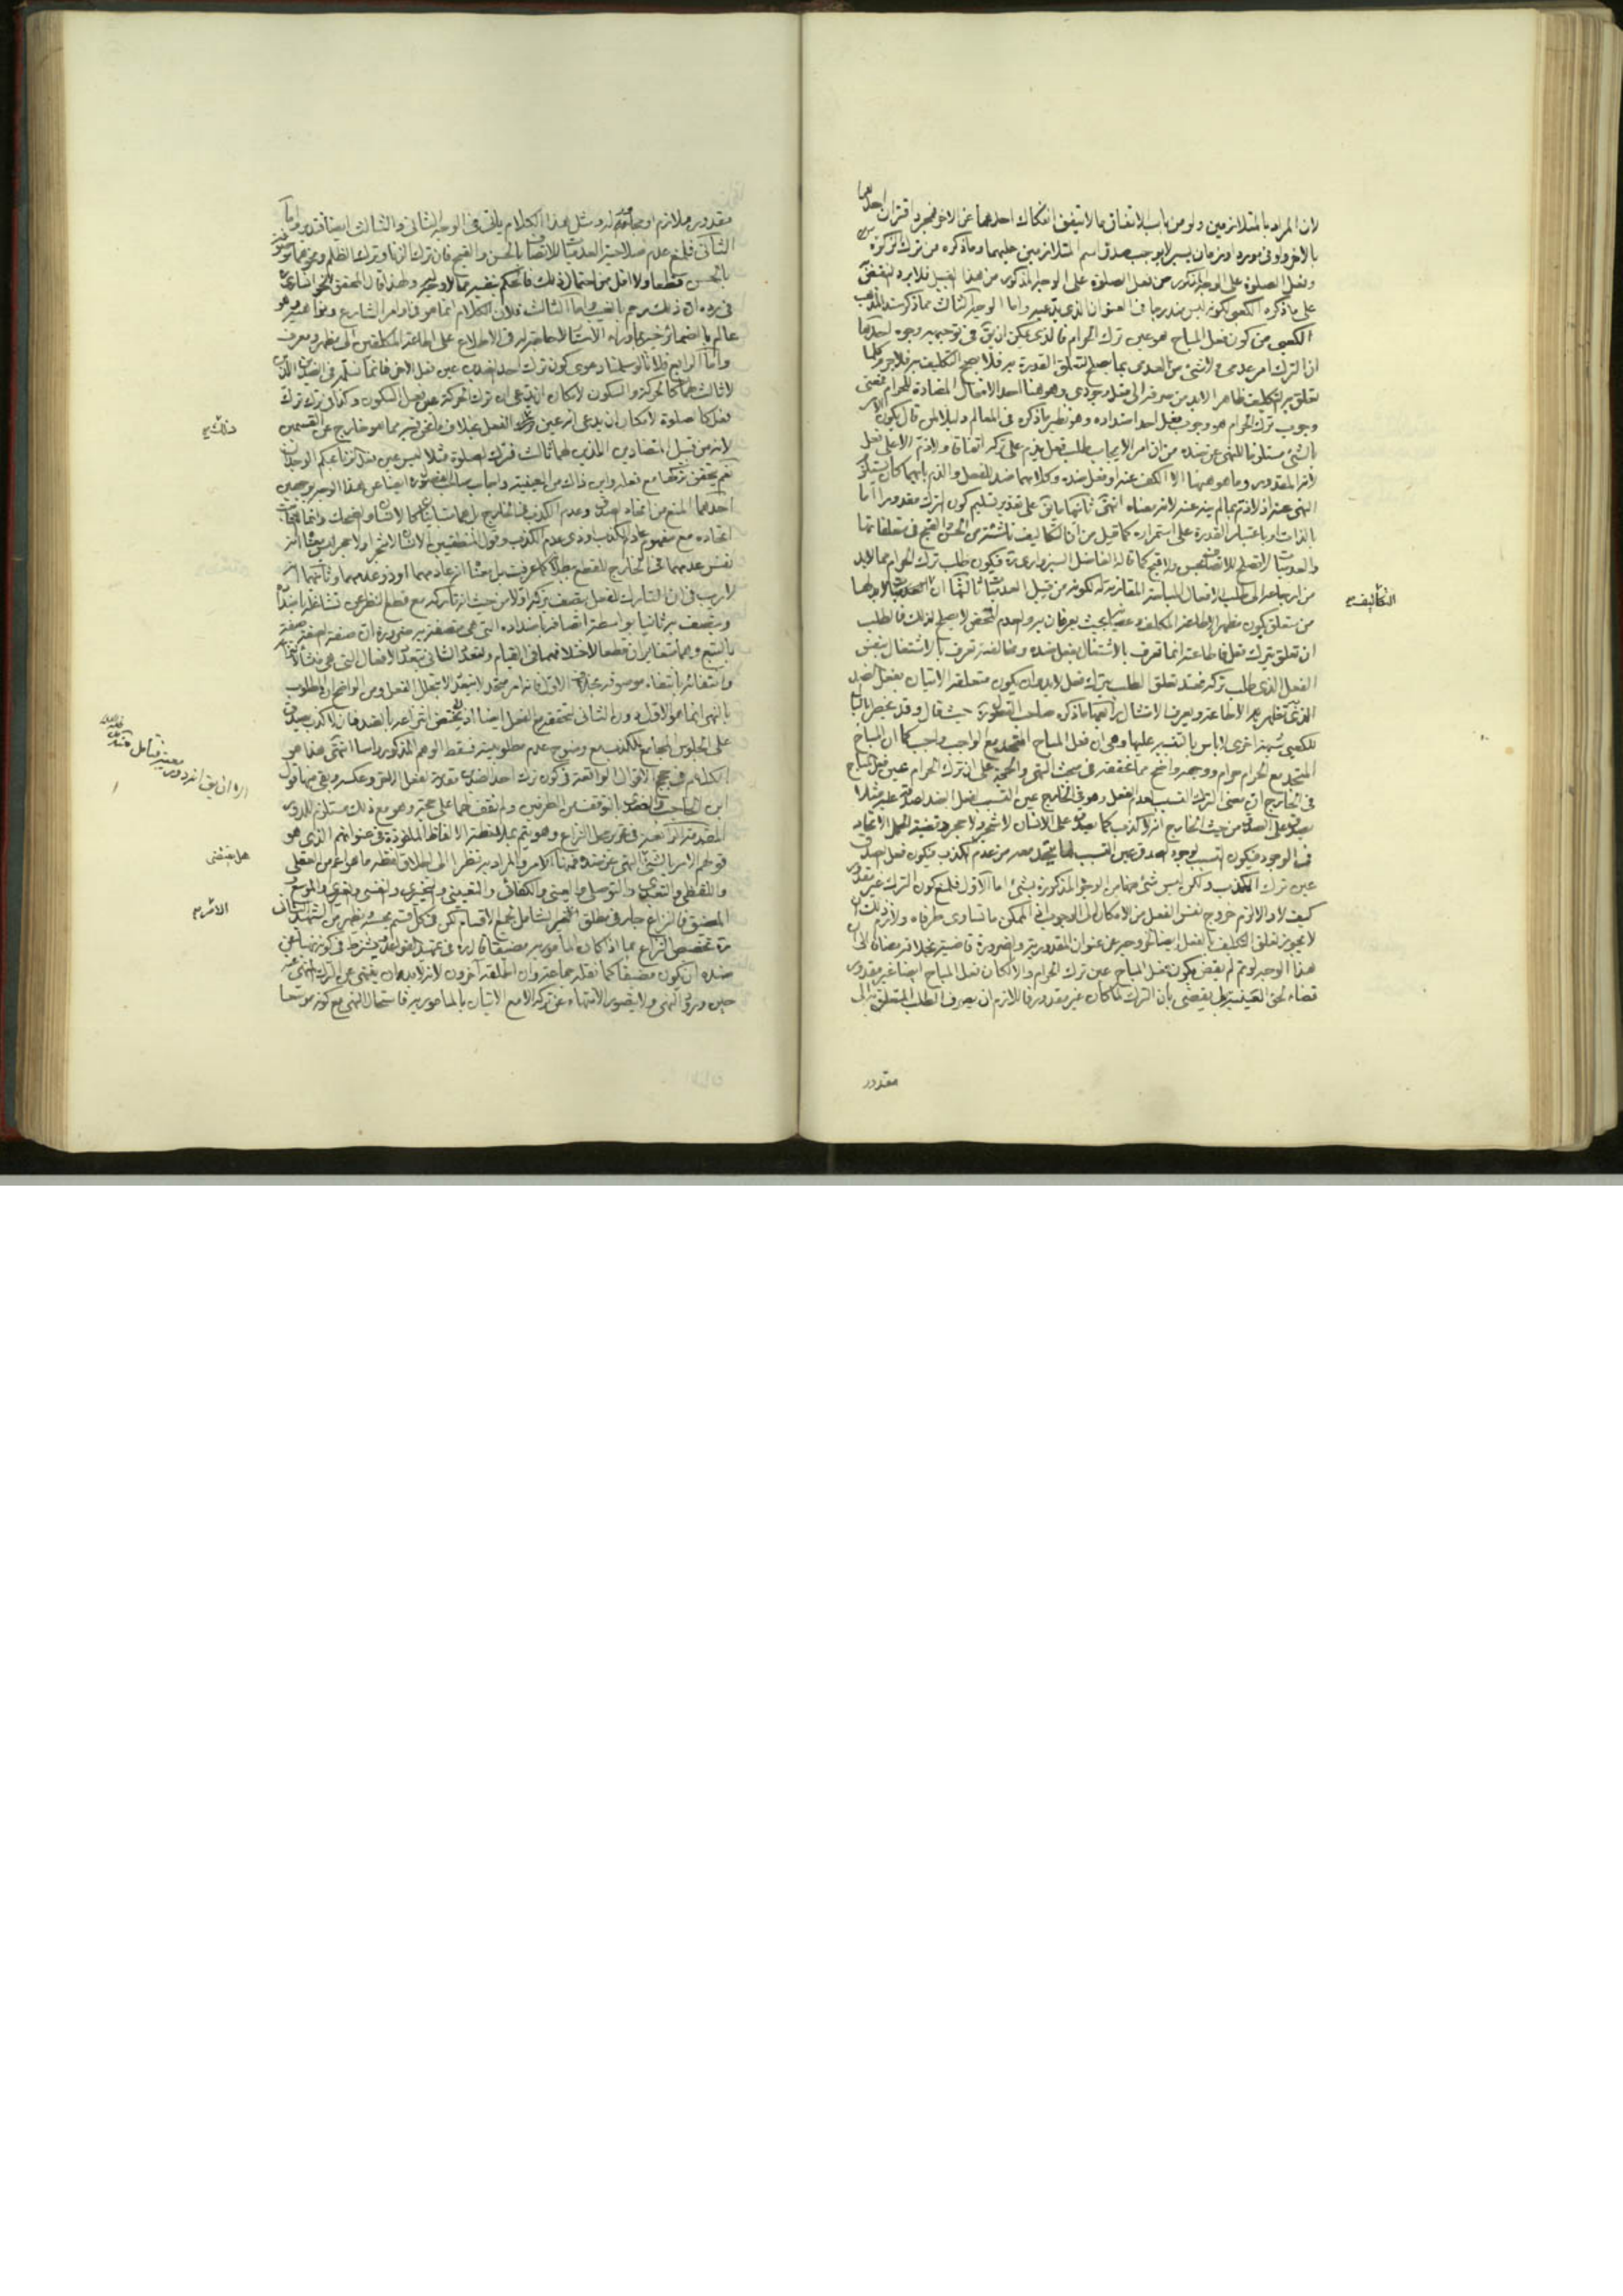 لان المراد بالمتلازمين ولو من باب الاتفاق ما لا يتفق انفكاك احدهما عن الاخر فمجرد اقتران احدهما
بالاخر ولو فى مورد او زمان يسير لا يوجب صدق اسم المتلازمين عليهما وما ذكره من ترك الزكوة
وفعل الصلوة على الوجه المذكور من فعل الصلوة على الوجه المذكور من هذا القبيل فلا يرد النقض
على ما ذكره الكعبى لكونه ليس مندرجا فى العنوان الذى يدعيه واما الوجه الثالث مما ذكر سند المذهب
الكعبى من كون فعل المباح هو عين ترك الحرام فالذى يمكن ان يق فى توجيهه وجوه احدها
ان الترك امر عدمى ولا شئ من العدمى بما يصلح لتعلق القدرة به فلا يصح التكليف به فلا جرم كلما
تعلق به التكليف ظاهرا لا بد من صرفه الى فعل وجودى وهو هنا احد الافعال المضادة للحرام فمعنى
وجوب ترك الحرام هو وجوب فعل احد اضداده وهو نظير ما ذكره فى المعالم دليلا لمن قال بكون الامر
بالشئ مستلزما للنهى عن ضده من ان امر الايجاب طلب فعل يذم على تركه اتفاقا ولا ذم الا على فعل
لانه المقدور وما هو هيهنا الا الكف عنه او فعل ضده وكلاهما ضد للفعل والذم بايهما كان يستلزم
النهى عنه اذ لا ذم بما لم ينه عنه لانه معناه انتهى ثانيها ما يق على تقدير تسليم كون الترك مقدورا اما
بالذات او باعتبار القدرة على استمراره كما قيل من ان التكاليف ناشئة من الحسن والقبح فى متعلقاتها
والعدميات لا تصلح للاتصاف بحسن ولا قبح كما قاله الفاضل السبزوارى ره فيكون طلب ترك الحرام مما لا بد
من ارجاعه الى طلب الافعال المباحة المقارنة له لكونه من قبيل العدميات ثالثها ان التكاليف لا بد لها
من متعلق يكون مظهر الاطاعة المكلف وعصيانه بحيث يعرفان به والعدم المحض لا يصلح لذلك فالطلب
ان تعلق بترك فعل فاطاعته انما تعرف بالاشتغال بفعل ضده ومخالفته تعرف بالاشتغال بنفس
الفعل الذى طلب تركه فعند تعلق الطلب بترك فعل لا بد وان يكون متعلقه الاتيان بفعل الضد
الذى تظهر به الاطاعة ويعرف الامتثال رابعها ما ذكره صاحب حيث قال وقد يخطر بالبال
للكعبى شبهة اخرى لا باس بالتنبيه عليها وهى ان فعل المباح المتحد مع الواجب واجب كما ان المباح
المتحد مع الحرام حرام ووجهه واضح مما نحققه فى مبحث النهى والحجة على ان ترك الحرام عين فعل المباح
فى الخارج ان معنى الترك انتسب لعدم الفعل وهو فى الخارج عين التسبب لفعل الضد لصدقه عليه مثلا
يصدق على الصدق من حيث الخارج انه لا كذب كما يصدق على الانسان لا شجر ولا حجر وقضية الحمل الاتحاد
فى الوجود فيكون التسبب لوجود الصدق عين التسبب لما يتحد معه من عدم الكذب فيكون فعل الصدق
عين ترك الكذب ولكن ليس شئ من هذه الوجوه المذكورة بشئ اما الاول فلمنع كون الترك غير مقدور
كيف لا والا لزم خروج نفس الفعل من الامكان الى الوجوب اذ الممكن ما تساوى طرفاه ولازم ذلك ان
لا يجوز تعلق التكليف بالفعل ايضا لخروجه عن عنوان المقدورية والضرورة قاضية بخلافه مضافا الى ان
هذا الوجه لو تم لم يقض بكون فعل المباح عين ترك الحرام والا لكان فعل المباح ايضا غير مقدور
قضاء لحق العينية بل يقضى بان الترك لما كان غير مقدور فاللازم ان يصرف الطلب المتعلق به الى
التكاليف صح
مقدور
مقدور ملازم او مقارن له ومثل هذا الكلام ياتى فى الوجه الثانى والثالث ايضا فتدبر واما
الثانى فلمنع عدم صلاحية العدميات للاتصاف بالحسن والقبح فان ترك الزنا وترك الظلم ونحوهما متصف
بالحسن قطعا ولا اقل من احتمال ذلك فالحكم بنفيه مما لا وجه له ولهذا قال المحقق الخوانسارى
فى رده ان ذلك رجم بالغيب واما الثالث فلان الكلام انما هو فى اوامر الشارع ونواهيه وهو
عالم بالضمائر خبير بما وراء الاستار فلا حاجة له فى الاطلاع على اطاعة المكلفين الى مظهر ومعرف
واما الرابع فلانا لو سلمنا دعوى كون ترك احد الضدين عين فعل الاخر فانما نسلمه فى الضدين اللذين
لا ثالث لهما كالحركة والسكون لامكان ان يدعى ان ترك الحركة عين فعل السكون وكذا فى ترك ترك
فعل كالصلوة لامكان ان يدعى انه عين ذلك الفعل بخلاف ما نحن فيه مما هو خارج عن القسمين
لانه من قبيل المتضادين اللذين لهما ثالث فترك الصلوة مثلا ليس عين فعل الزنا بحكم الوجدان
نعم يتحقق تركها مع فعله واين ذاك من العينية
احدهما المنع من اتحاد الصدق وعدم الكذب فى الخارج بل هما متباينان كالانسان والضحك وانما
اتحاده مع مفهوم عادم الكذب او ذى عدم الكذب وقول المنطقيين الانسان لا شجر ولا حجر ليس معناه انه
نفس عدمهما فى الخارج للقطع ببطلانه كما عرفت بل معناه انه عادمهما او ذو عدمهما وثانيهما انه
لا ريب فى ان التارك للفعل يتصف بتركه اولا من حيث انه تاركه مع قطع النظر عن تشاغله باضداده
ويتصف به ثانيا بواسطة اتصافه باضداده التى هى متصفة به ضرورة ان صفة الصفة صفة
بالتبع وهما متغايران قطعا لاختلافهما فى القيام وتعدد الثانى بتعدد الافعال التى هى منشاء
وانتفائه بانتفاء موصوفه بخلاف الاول فانه امر متحد لا يتعدد الا بتخلل الفعل ومن الواضح ان المطلوب
بالنهى انما هو الاول دون الثانى لتحققه مع الفعل ايضا اذ لا يختص انتزاعه بالضد فان لا كذب يصدق
على الجلوس المجامع للكذب مع وضوح عدم مطلوبيته فسقط الوهم المذكور راسا انتهى هذا هو
الكلام فى حجج الاقوال الواقعة فى كون ترك احد الضدين مقدمة لفعل الاخر وعكسه وبقى منها قول
ابن الحاجب والعضدى بالتوقف من الطرفين ولم نقف لهما على حجة وهو مع ذلك مستلزم للدور
المقدمة الرابعة فى تحرير محل النزاع وهو يتم بملاحظة الالفاظ الماخوذة فى عنوانهم الذى هو
قولهم الامر بالشئ هل يقتضى النهى عن ضده فمنها الامر والمراد به نظرا الى اطلاق لفظه ما هو اعم من العقلى
واللفظى والتعبدى والتوصلى والعينى والكفائى والتعيينى والتخييرى والنفسى والغيرى والموسع و
المضيق فالنزاع جار فى مطلق الامر الشامل لجميع الاقسام لكن فى كل قسم بحسبه ويظهر من الشهيد الثانى
ره تخصيص النزاع بما اذا كان المامور به مضيقا قال ره فى تمهيد القواعد ويشترط فى كونه نهيا عن
ضده ان يكون مضيقا كما نقله جماعة وان اطلقه آخرون لانه لا بد ان ينتهى عن الترك المنهى عنه
حين ورود النهى ولا يتصور الانتهاء عن تركه الا مع الاتيان بالمامور به فاستحال النهى مع كونه موسعا
هل يقتضى
الامر صح